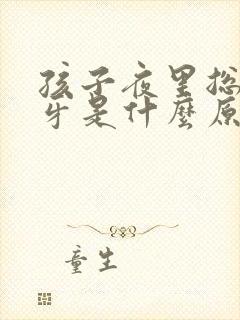 孩子夜里总
牙是什麼原
童生